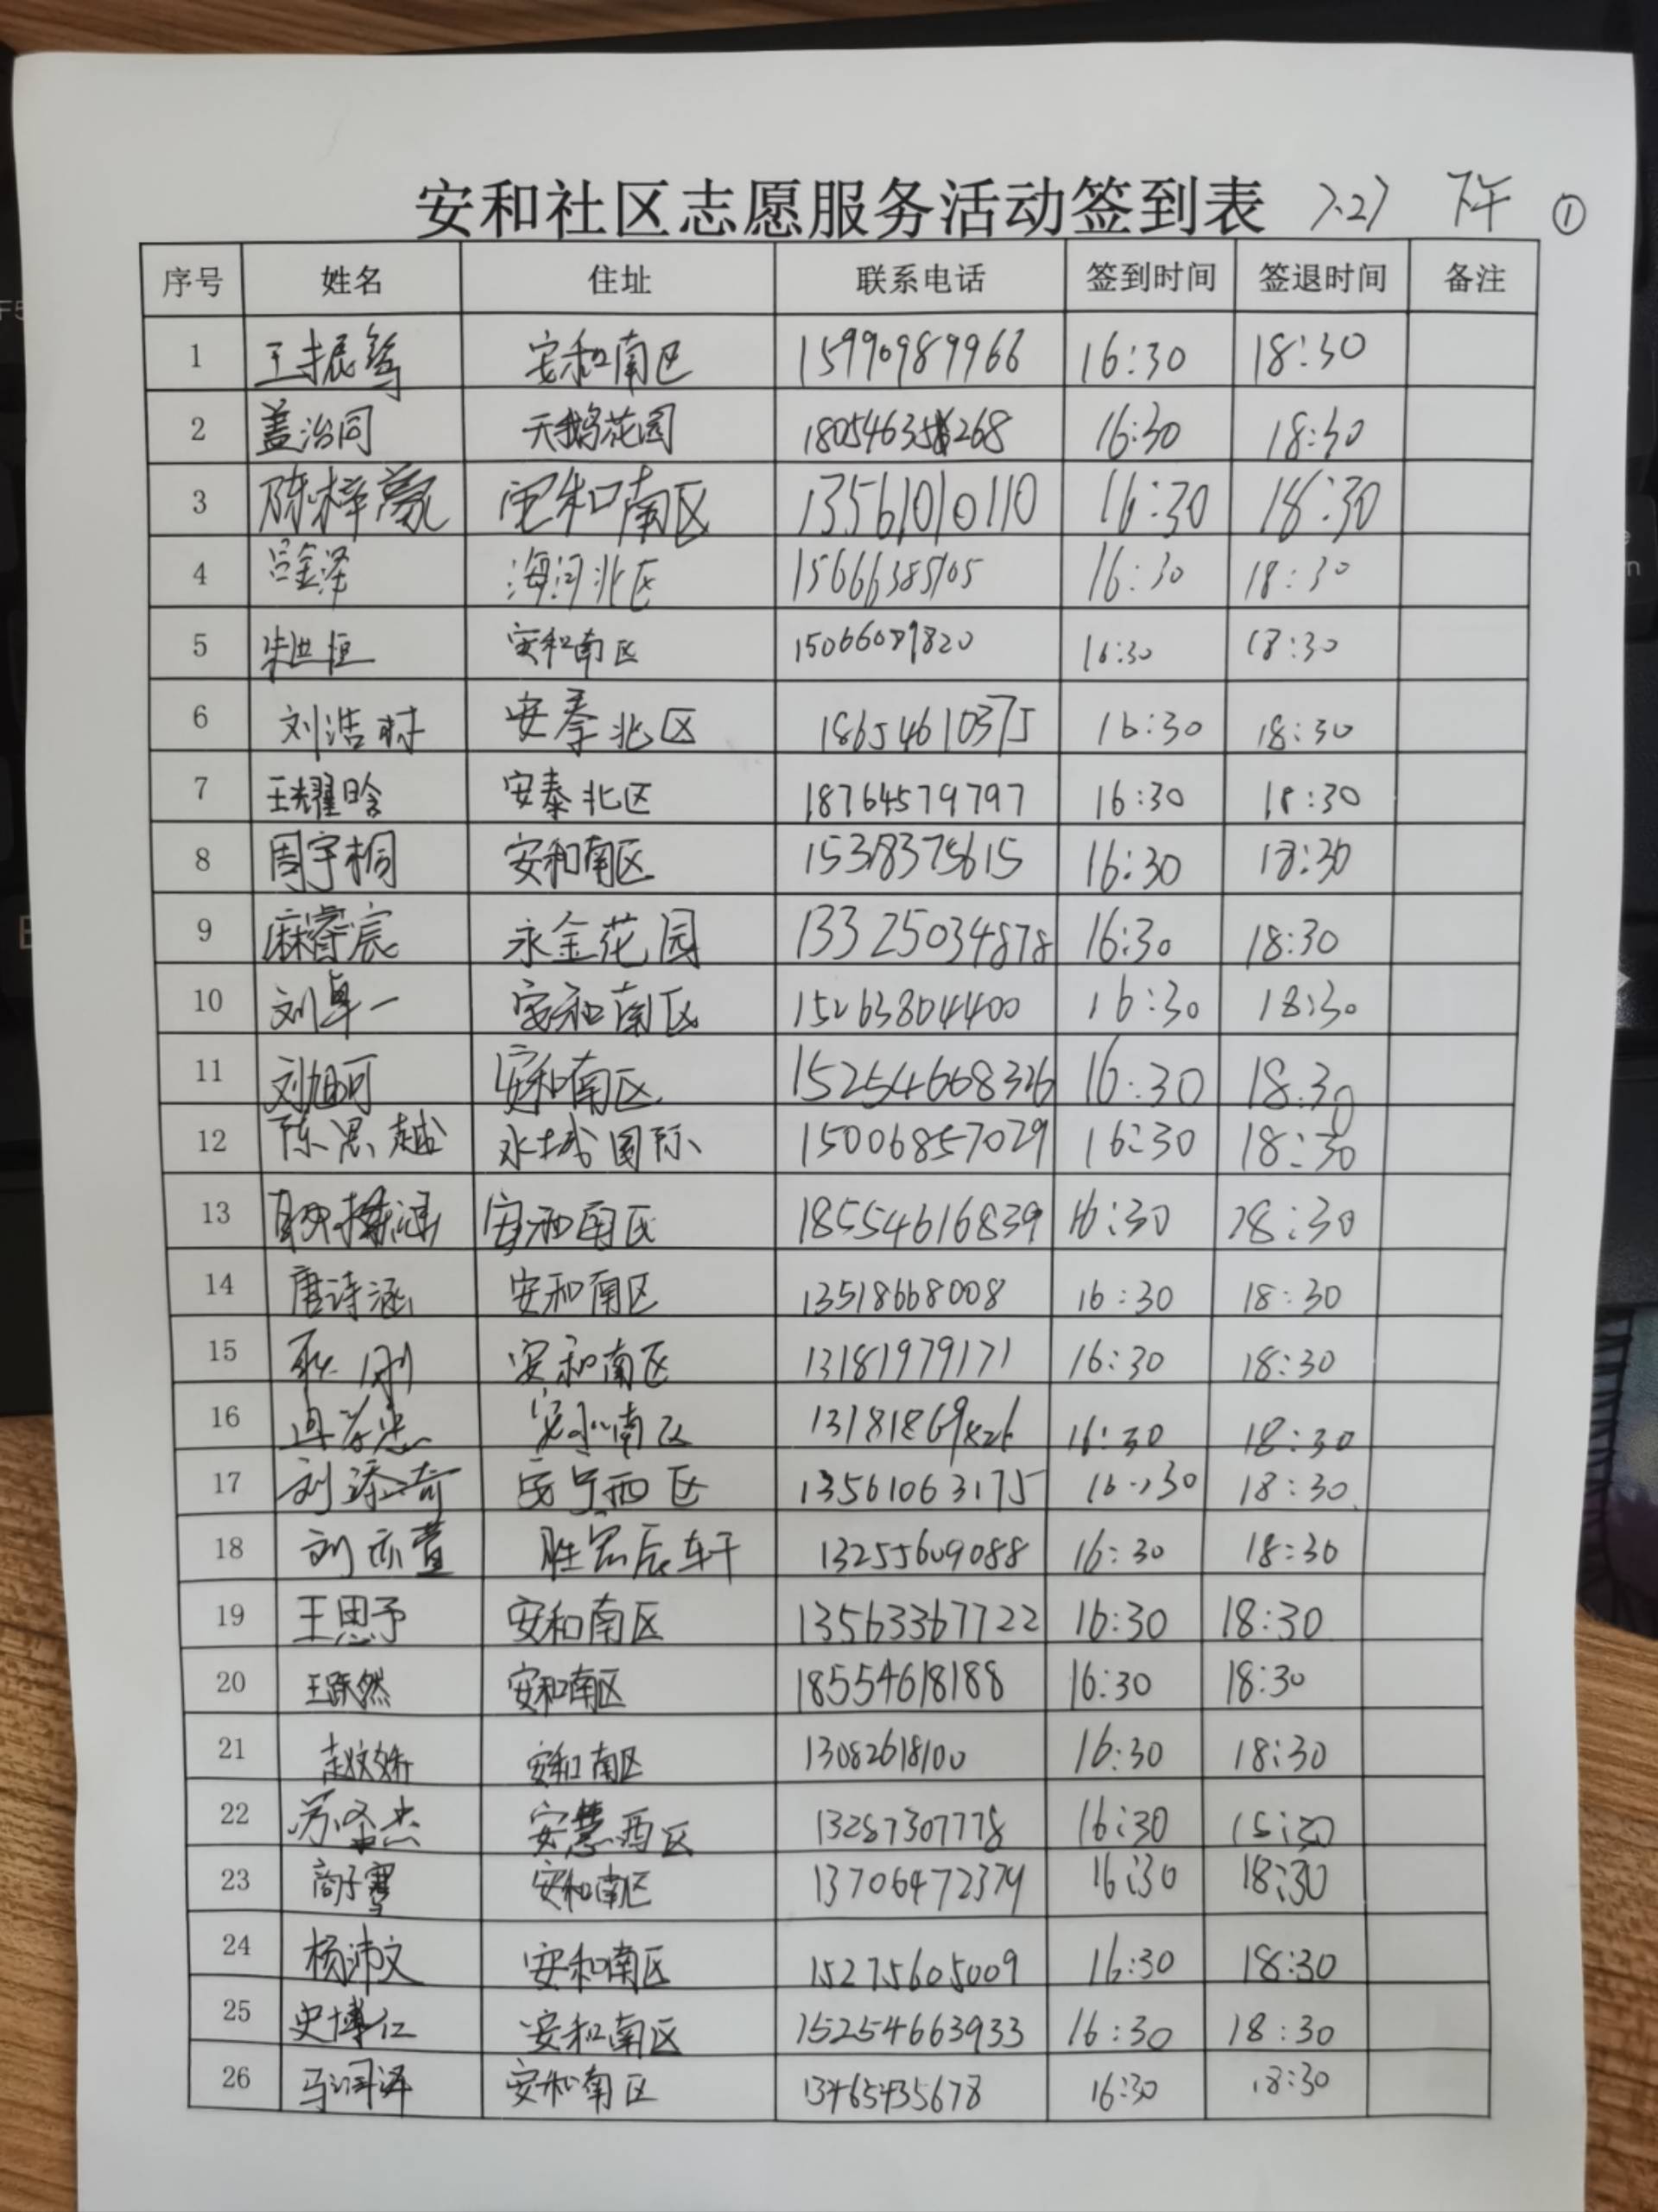 安和社区志愿服务活动签到表 7.27 下午 ①
序号 姓名 住址 联系电话 签到时间 签退时间 备注
1 王振 安和南区 15990989966 16:30 18:30
2 盖治同 天鹅花园 16:30 18:30
3 陈梓 安和南区 13561010110 16:30 18:30
4 吕金泽 海河北区 15666385105 16:30 18:30
5 朱世恒 安和南区 15066089820 16:30 18:30
6 刘浩 安泰北区 18654610375 16:30 18:30
7 王耀晗 安泰北区 18764579797 16:30 18:30
8 周宇桐 安和南区 15318375615 16:30 18:30
9 麻睿宸 永金花园 13325034878 16:30 18:30
10 刘卓一 安和南区 15263804400 16:30 18:30
11 刘旭可 安和南区 15254668326 16:30 18:30
12 陈思越 水城国际 15006857029 16:30 18:30
13 涵 安和南区 18554616839 16:30 18:30
14 唐诗涵 安和南区 13518668008 16:30 18:30
15 刚 安和南区 13181979171 16:30 18:30
16 安和南区 16:30 18:30
17 刘添奇 安宁西区 13561063175 16:30 18:30
18 刘亦萱 胜宏辰轩 13255609088 16:30 18:30
19 王思予 安和南区 13563367722 16:30 18:30
20 王跃然 安和南区 18554618188 16:30 18:30
21 赵文娇 安和南区 13082618100 16:30 18:30
22 苏圣杰 安慧西区 13287307778 16:30
23 商子骞 安和南区 13706472379 16:30 18:30
24 杨沛文 安和南区 15275605009 16:30 18:30
25 史博仁 安和南区 15254663933 16:30 18:30
26 马润泽 安和南区 13465435678 16:30 18:30